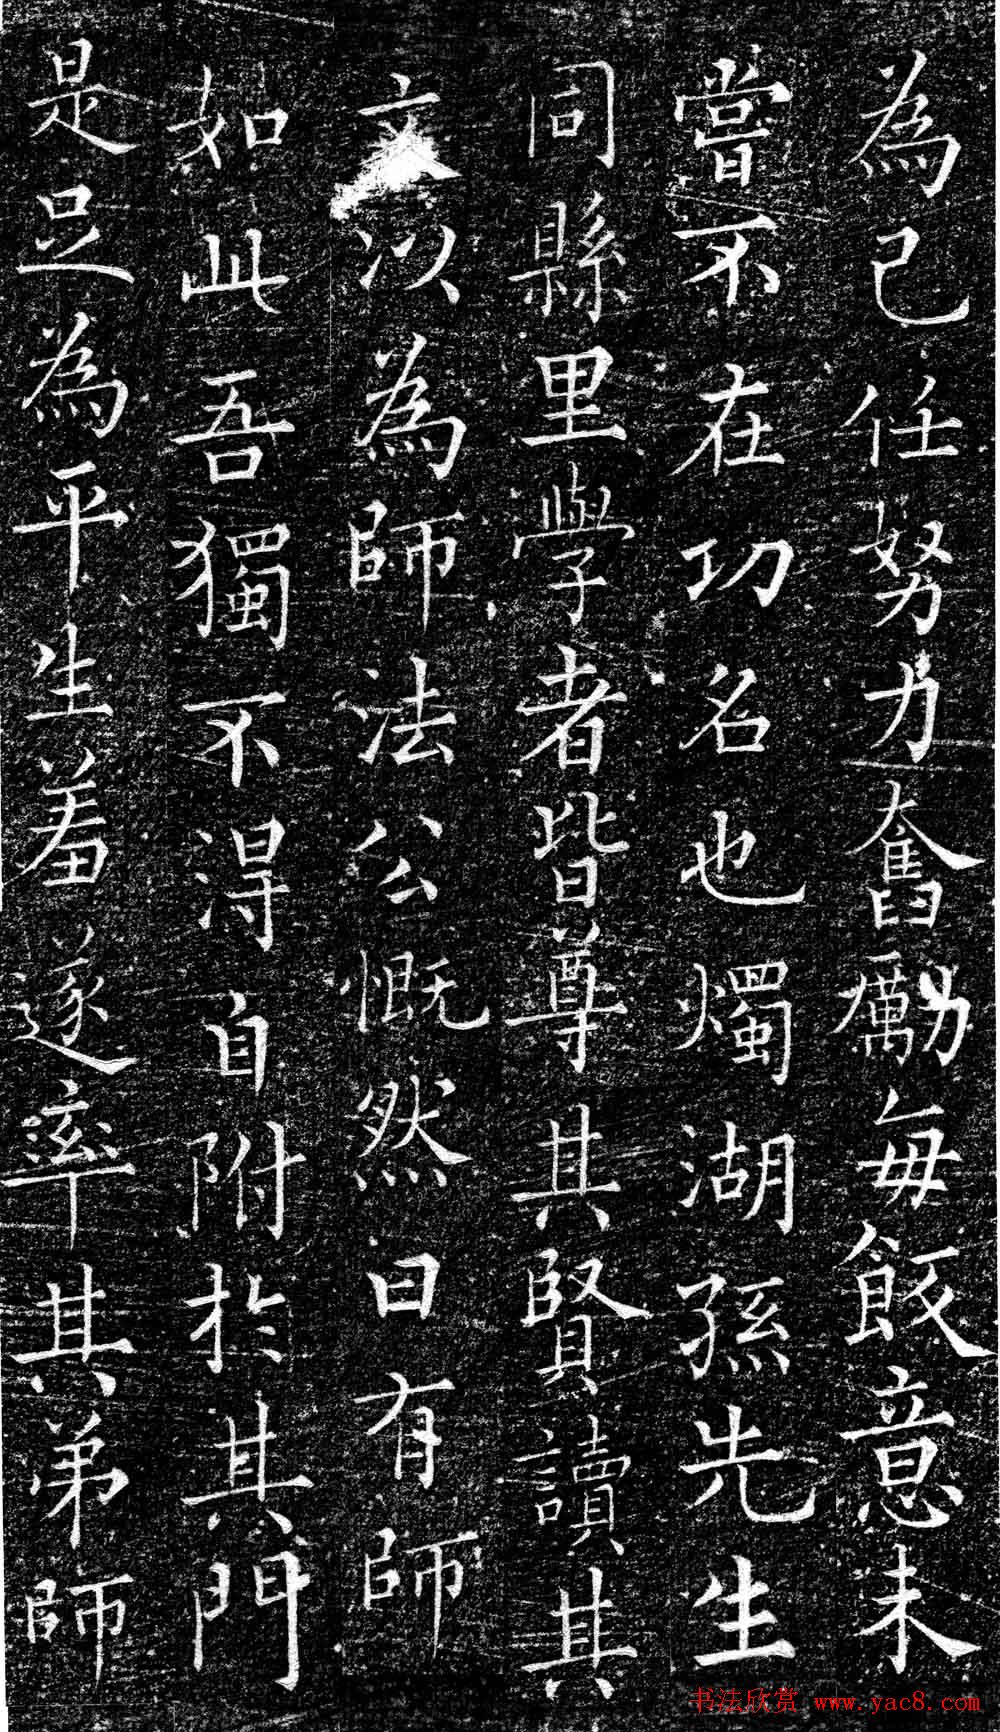 為己任努力奮勵每飯意未
嘗不在功名也燭湖孫先生
同縣里學者皆尊其賢讀其
文以為師法公慨然曰有師
如此吾獨不得自附於其門
是足為平生羞遂率其弟師
书法欣赏 www.yac8.com